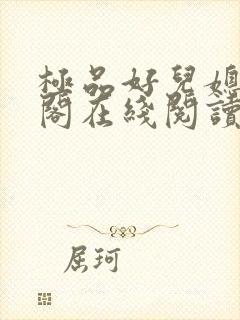 極品好兒媳
閣在綫閱讀
屈珂